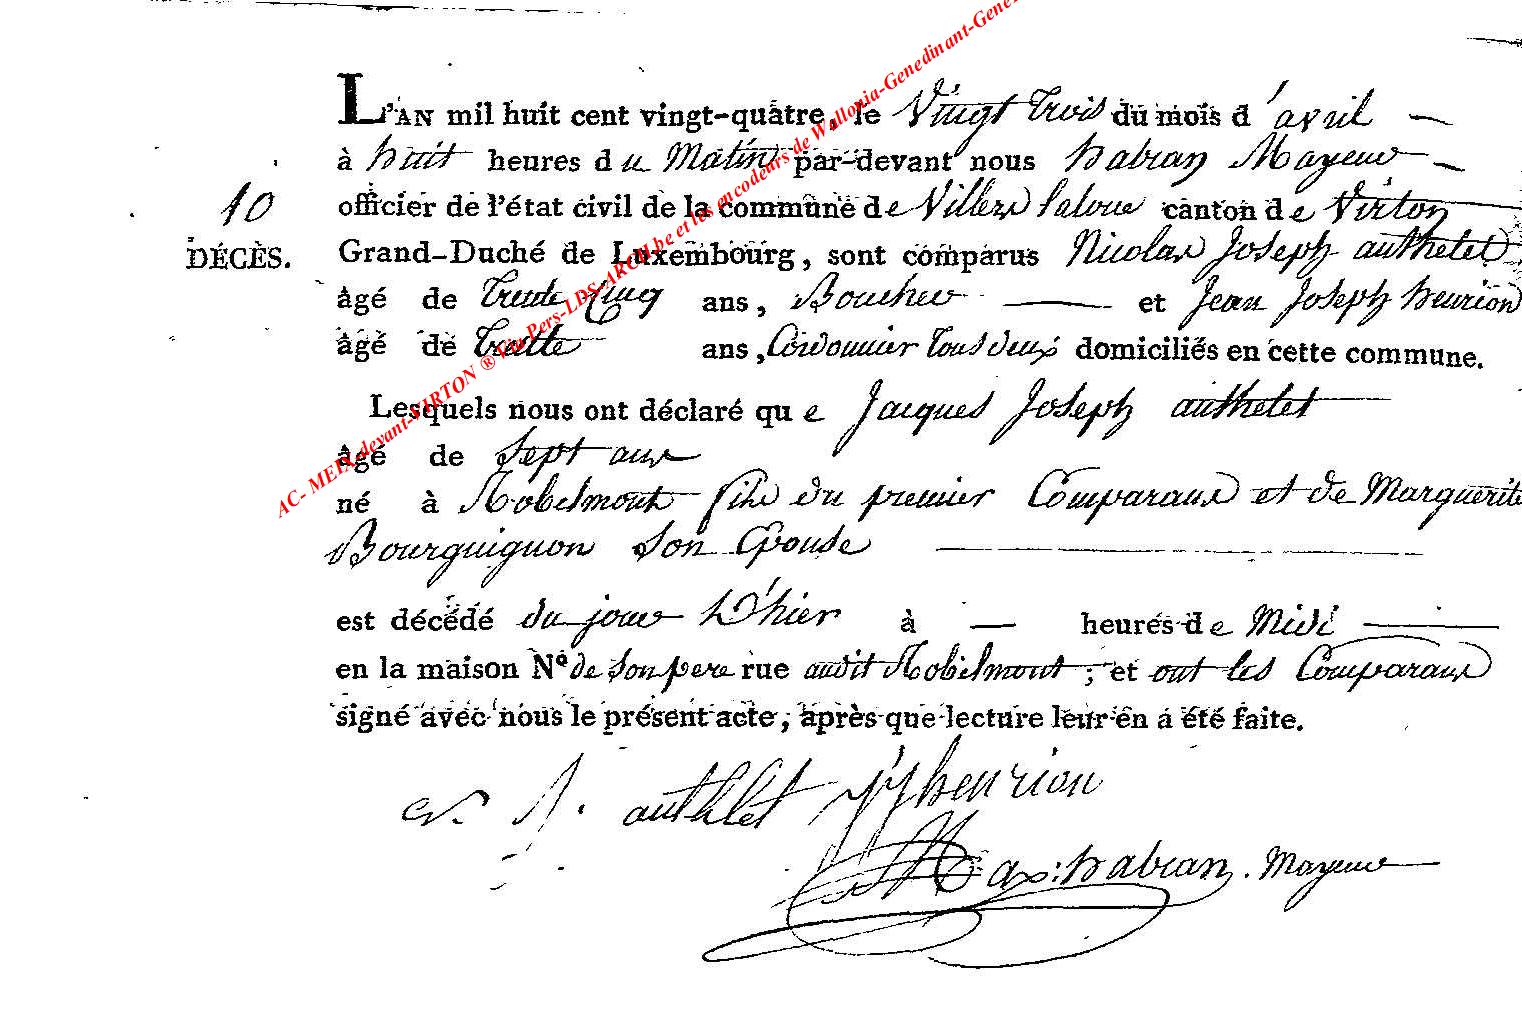 L'AN mil huit cent vingt-quatre, le Vingt Trois du mois d'avril
à huit heures du Matin par-devant nous habran Mayeur
10
officier de l'état civil de la commune de Villers laloue canton de Virton
DÉCÈS.
Grand-Duché de Luxembourg, sont comparus Nicolas Joseph authelet
âgé de Trente Cinq ans, Boucher et Jean Joseph henrion
âgé de Trente ans, Cordonnier Tous deux domiciliés en cette commune.
Lesquels nous ont déclaré que Jacques Joseph authelet
âgé de Sept ans
né à Robelmont fils du premier Comparant et de Marguerite
Bourguignon Son Epouse
est décédé du jour D'hier à — heures de Midi
en la maison N° de Son pere rue audit Robelmont; et ont les Comparans
signé avec nous le présent acte, après que lecture leur en a été faite.
N. J. authlet JJ henrion
Max: habran. Mayeur
AC- MEIX-devant-VIRTON ® Via Pers-LDS-ARCH.be et les encodeurs de Wallonia-Genedinant-Gene